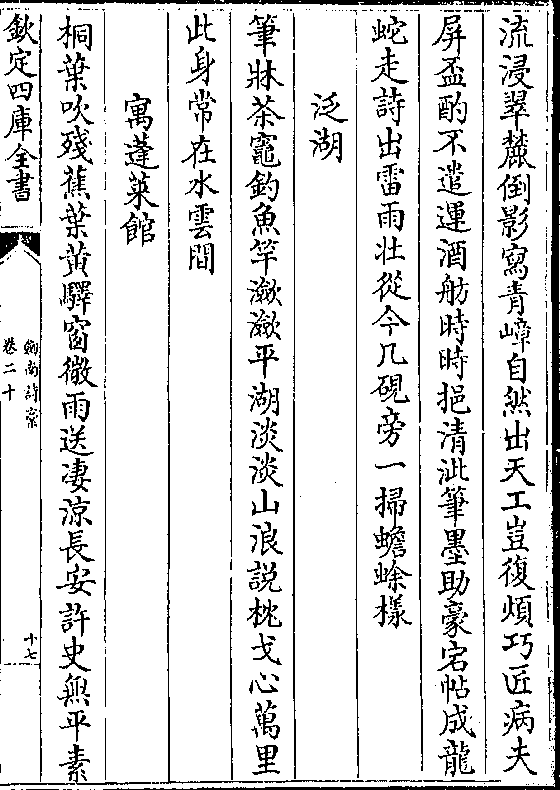 流浸翠麓倒影寫青嶂自然出天工豈復煩巧匠病夫
屏盃酌不遣運酒舫時時挹清泚筆墨助豪宕帖成龍
蛇走詩出雷雨壯從今几硯旁一掃蟾蜍樣
泛湖
筆牀茶竈釣魚竿瀲瀲平湖淡淡山浪説枕戈心萬里
此身常在水雲間
寓蓬萊館
桐葉吹殘蕉葉黄驛窗微雨送凄涼長安許史無平素
欽定四庫全書
劍南詩稾
卷二十
十七